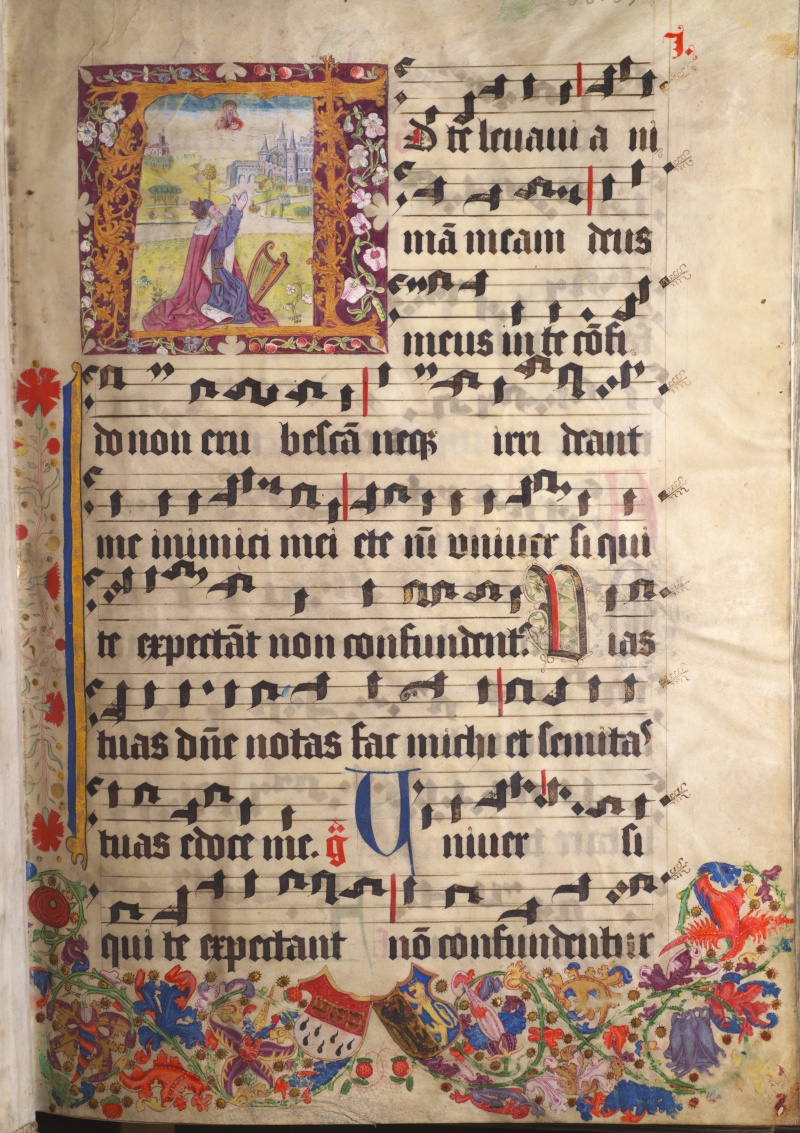 I.
D te leuaui a ni
mā meam deus
meus in te cōfi
do non eru bescā neqꝫ irri deant
me inimici mei ete nī vniuer si qui
te expectāt non confundent᷑. Vias
tuas dn̄e notas fac michi et semitas
tuas edoce me. g̈ Uniuer si
qui te expectant nō confundentur